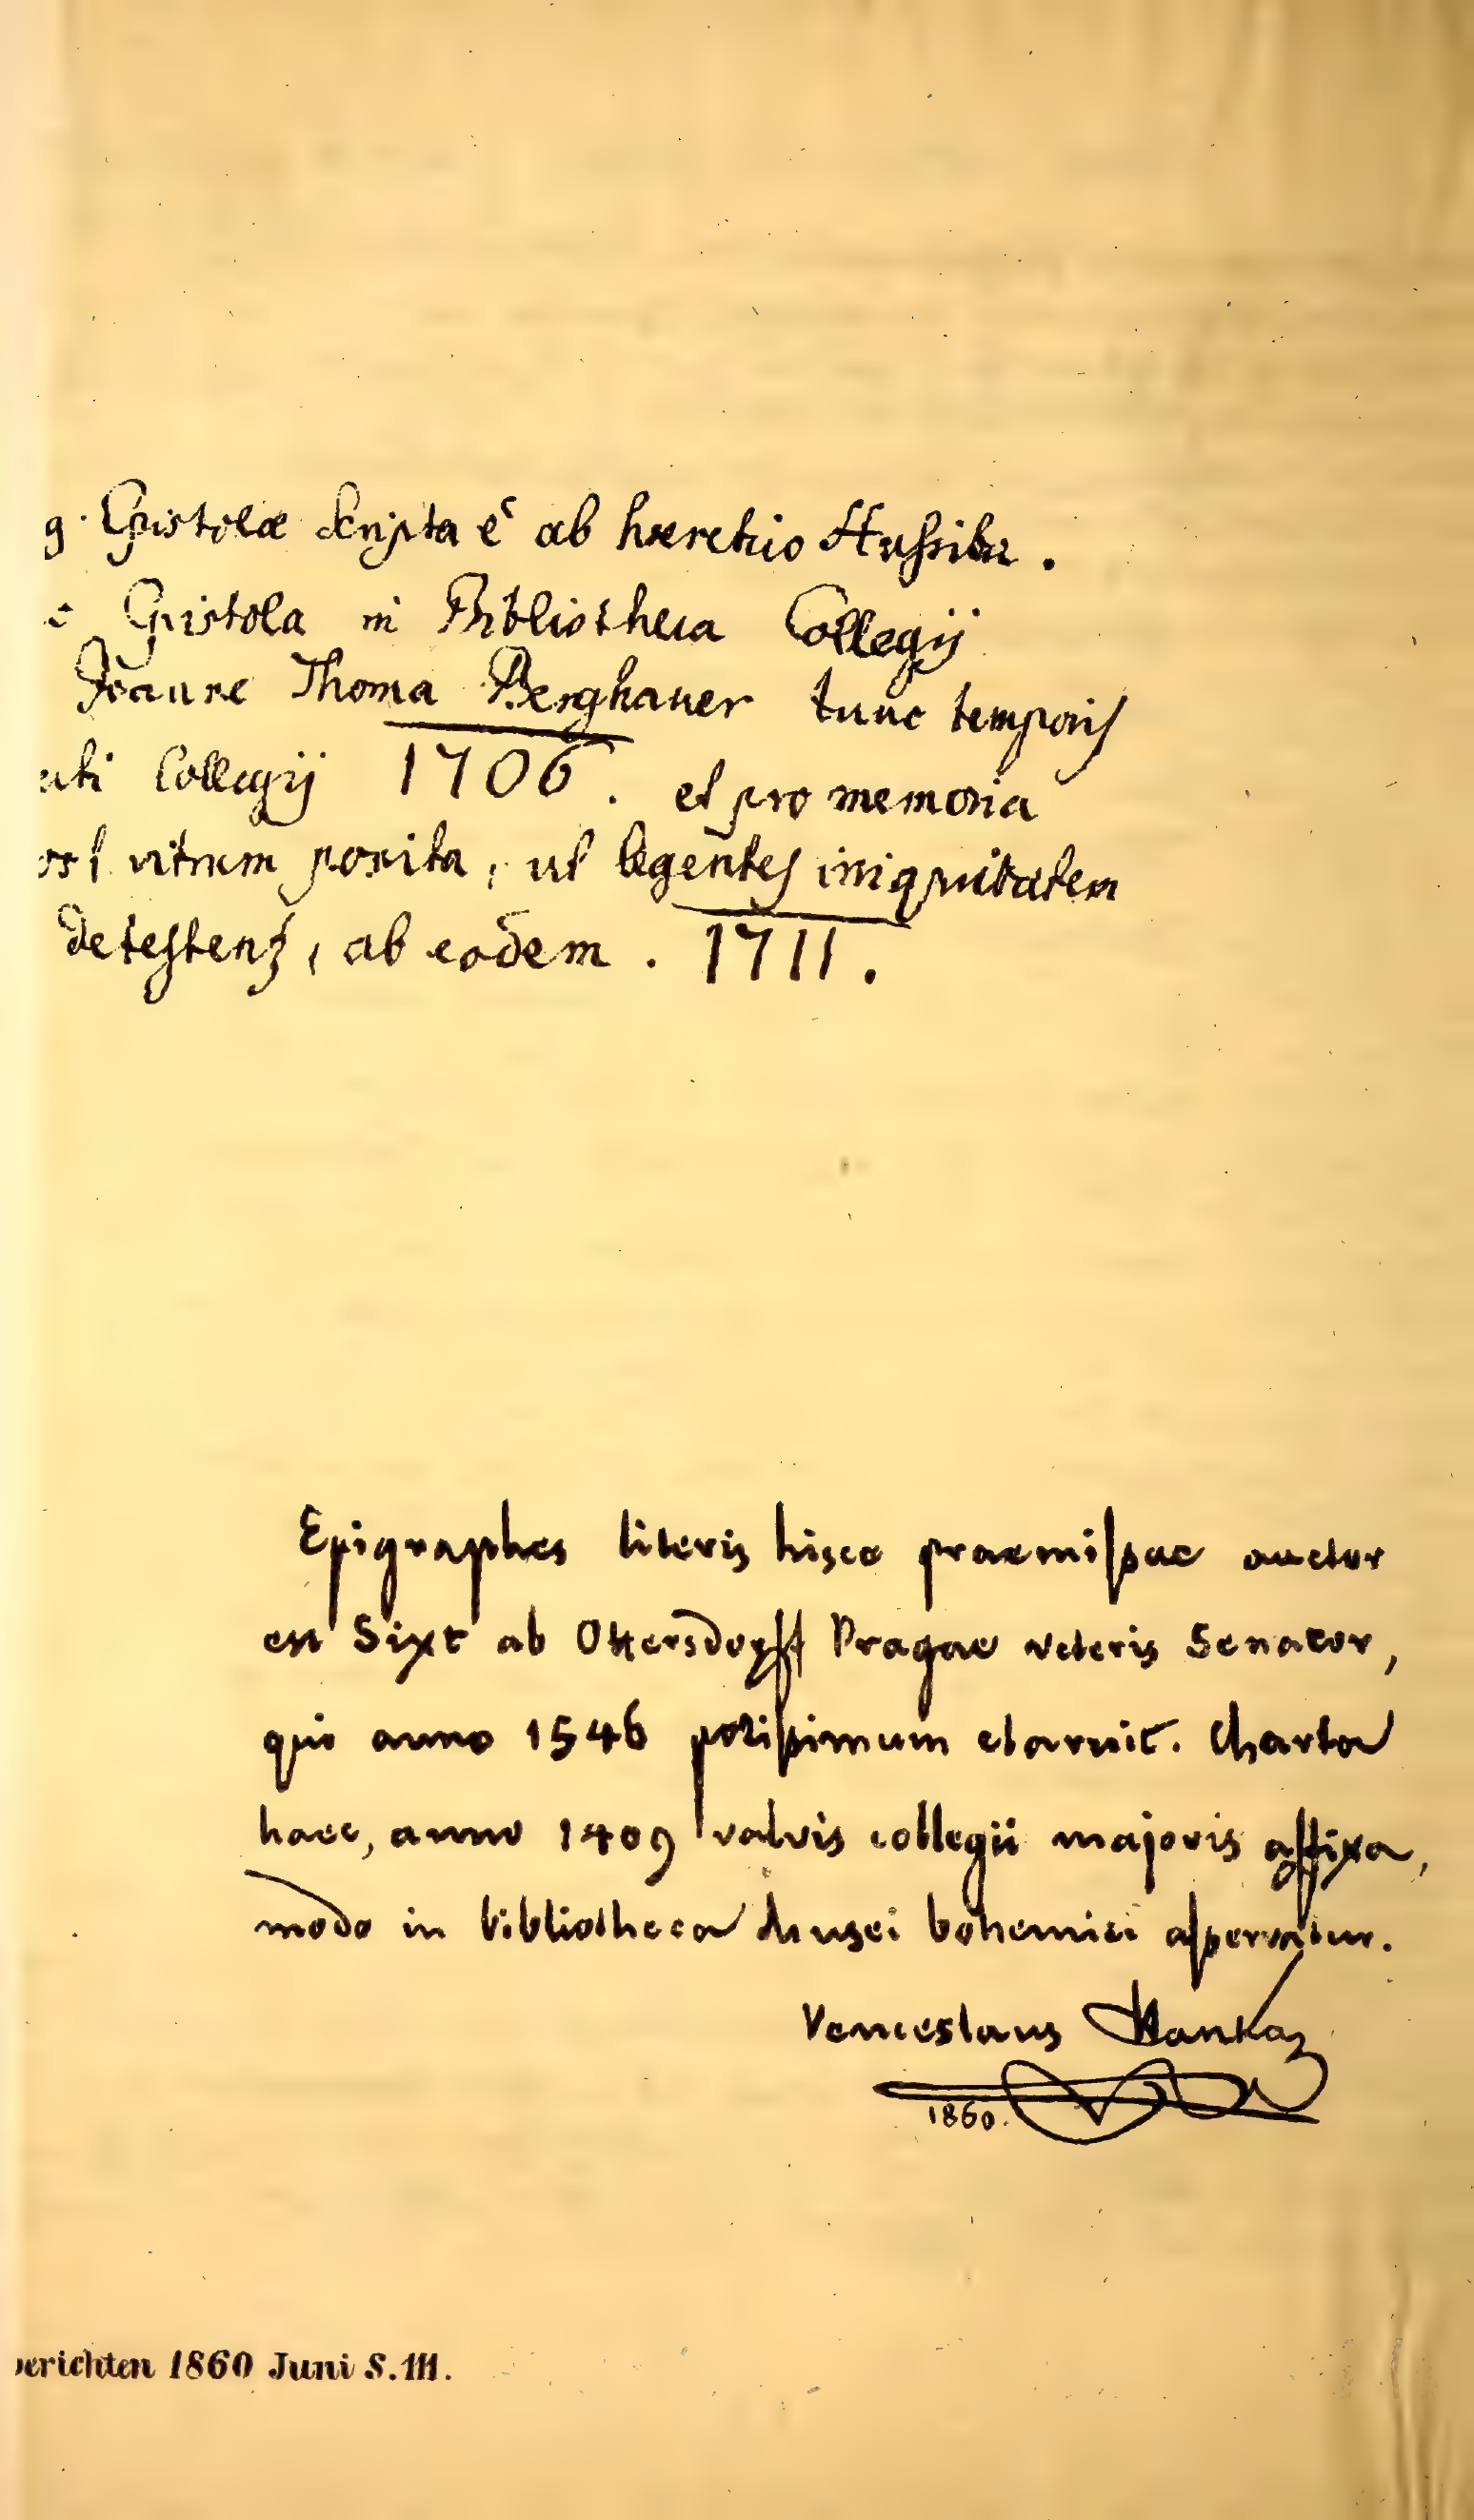 g. Epistola scripta ē ab hæretico Hussita.
Epistola in Bibliotheca Collegij
Joanne Thoma Berghauer tunc temporis
Collegij 1706. et pro memoria
ost vitrum posita, ut legentes iniquitatem
detestent, ab eodem. 1711.
Epigraphes literis hisce praemissae auctor
est Sixt ab Ottersdorff Pragae veteris Senator,
qui anno 1546 potissimum claruit. Charta
haec, anno 1409 valvis collegii majoris affixa,
modo in bibliotheca Musei bohemici asservatur.
Venceslaus Hanka
1860.
erichten 1860 Juni S.111.